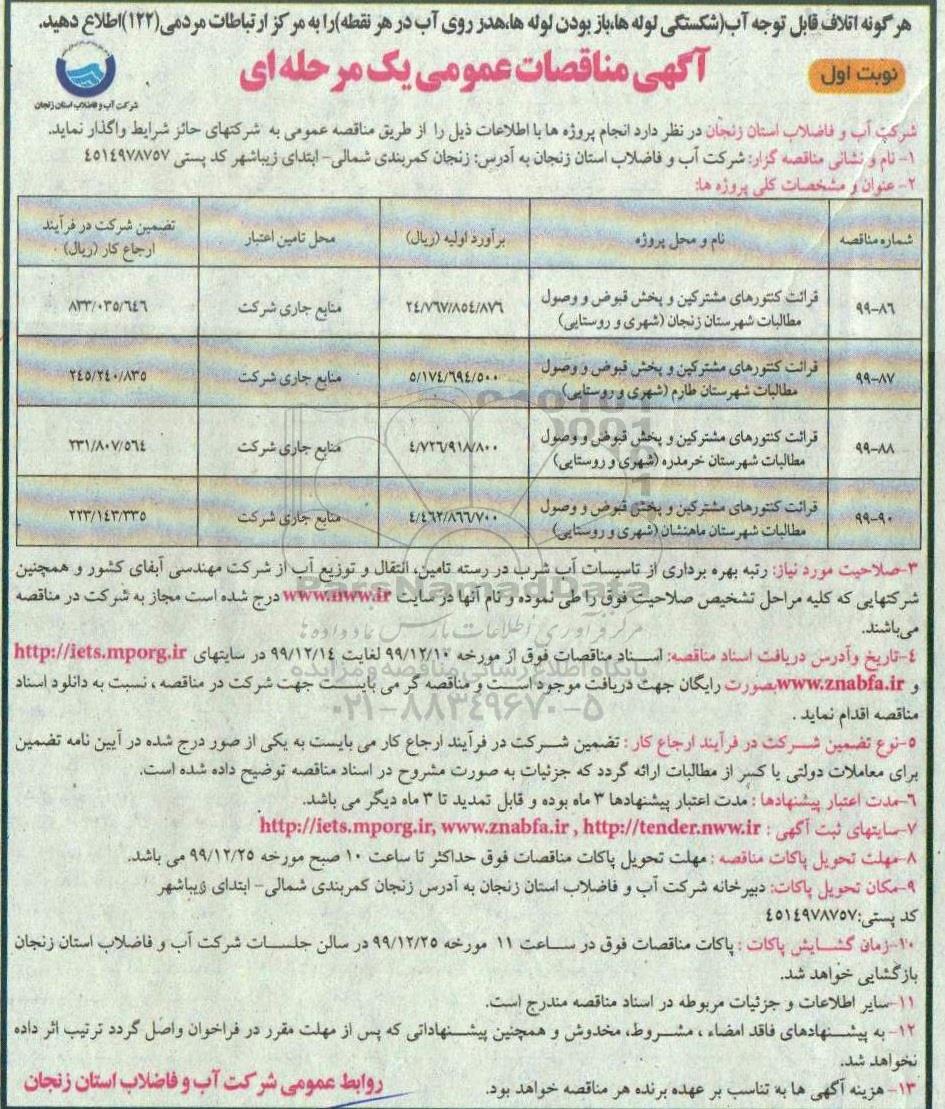 هرگونه اتلاف قابل توجه آب(شکستگی لوله ها،باز بودن لوله ها،هدز روی آب در هر نقطه)را به مرکز ارتباطات مردمی(۱۲۲)اطلاع دهید.
نوبت اول
آگهی مناقصات عمومی یک مرحله ای
شرکت آب و فاضلاب استان زنجان
شرکت آب و فاضلاب استان زنجان در نظر دارد انجام پروژه ها با اطلاعات ذیل را از طریق مناقصه عمومی به شرکتهای حائز شرایط واگذار نماید.
۱- نام و نشانی مناقصه گزار: شرکت آب و فاضلاب استان زنجان به آدرس: زنجان کمربندی شمالی- ابتدای زیباشهر کد پستی ۴۵۱۴۹۷۸۷۵۷
۲- عنوان و مشخصات کلی پروژه ها:
شماره مناقصه | نام و محل پروژه | برآورد اولیه (ریال) | محل تامین اعتبار | تضمین شرکت در فرآیند ارجاع کار (ریال)
۹۹-۸۶ | قرائت کنتورهای مشترکین و پخش قبوض و وصول مطالبات شهرستان زنجان (شهری و روستایی) | ۲۴/۷۶۷/۸۵۴/۸۷۶ | منابع جاری شرکت | ۸۳۳/۰۳۵/۶۴۶
۹۹-۸۷ | قرائت کنتورهای مشترکین و پخش قبوض و وصول مطالبات شهرستان طارم (شهری و روستایی) | ۵/۱۷۴/۶۹۴/۵۰۰ | منابع جاری شرکت | ۲۴۵/۲۴۰/۸۳۵
۹۹-۸۸ | قرائت کنتورهای مشترکین و پخش قبوض و وصول مطالبات شهرستان خرمدره (شهری و روستایی) | ۴/۷۲۶/۹۱۸/۸۰۰ | منابع جاری شرکت | ۲۳۱/۸۰۷/۵۶۴
۹۹-۹۰ | قرائت کنتورهای مشترکین و پخش قبوض و وصول مطالبات شهرستان ماهنشان (شهری و روستایی) | ۴/۴۶۲/۸۶۶/۷۰۰ | منابع جاری شرکت | ۲۲۳/۱۴۳/۳۳۵
۳-صلاحیت مورد نیاز: رتبه بهره برداری از تاسیسات آب شرب در رسته تامین، انتقال و توزیع آب از شرکت مهندسی آبفای کشور و همچنین
شرکتهایی که کلیه مراحل تشخیص صلاحیت فوق را طی نموده و نام آنها در سایت www.nww.ir درج شده است مجاز به شرکت در مناقصه
می‌باشند.
۴-تاریخ وآدرس دریافت اسناد مناقصه: اسناد مناقصات فوق از مورخه ۹۹/۱۲/۱۰ لغایت ۹۹/۱۲/۱۴ در سایتهای http://iets.mporg.ir
و www.znabfa.ir بصورت رایگان جهت دریافت موجود است و مناقصه گر می بایست جهت شرکت در مناقصه ، نسبت به دانلود اسناد
مناقصه اقدام نماید .
۵-نوع تضمین شرکت در فرآیند ارجاع کار : تضمین شرکت در فرآیند ارجاع کار می بایست به یکی از صور درج شده در آیین نامه تضمین
برای معاملات دولتی یا کسر از مطالبات ارائه گردد که جزئیات به صورت مشروح در اسناد مناقصه توضیح داده شده است.
۶-مدت اعتبار پیشنهادها : مدت اعتبار پیشنهادها ۳ ماه بوده و قابل تمدید تا ۳ ماه دیگر می باشد.
۷-سایتهای ثبت آگهی : http://iets.mporg.ir, www.znabfa.ir , http://tender.nww.ir
۸-مهلت تحویل پاکات مناقصه : مهلت تحویل پاکات مناقصات فوق حداکثر تا ساعت ۱۰ صبح مورخه ۹۹/۱۲/۲۵ می باشد.
۹-مکان تحویل پاکات: دبیرخانه شرکت آب و فاضلاب استان زنجان به آدرس زنجان کمربندی شمالی- ابتدای زیباشهر
کد پستی:۴۵۱۴۹۷۸۷۵۷
۱۰-زمان گشایش پاکات : پاکات مناقصات فوق در ساعت ۱۱ مورخه ۹۹/۱۲/۲۵ در سالن جلسات شرکت آب و فاضلاب استان زنجان
بازگشایی خواهد شد.
۱۱-سایر اطلاعات و جزئیات مربوطه در اسناد مناقصه مندرج است.
۱۲- به پیشنهادهای فاقد امضاء ، مشروط، مخدوش و همچنین پیشنهاداتی که پس از مهلت مقرر در فراخوان واصل گردد ترتیب اثر داده
نخواهد شد.
۱۳- هزینه آگهی ها به تناسب بر عهده برنده هر مناقصه خواهد بود.
روابط عمومی شرکت آب و فاضلاب استان زنجان
ParsNamadData
مرکز فرآوری اطلاعات پارس نماد داده ها
پایگاه اطلاع رسانی مناقصه و مزایده
۰۲۱-۸۸۳۴۹۶۷۰-۵